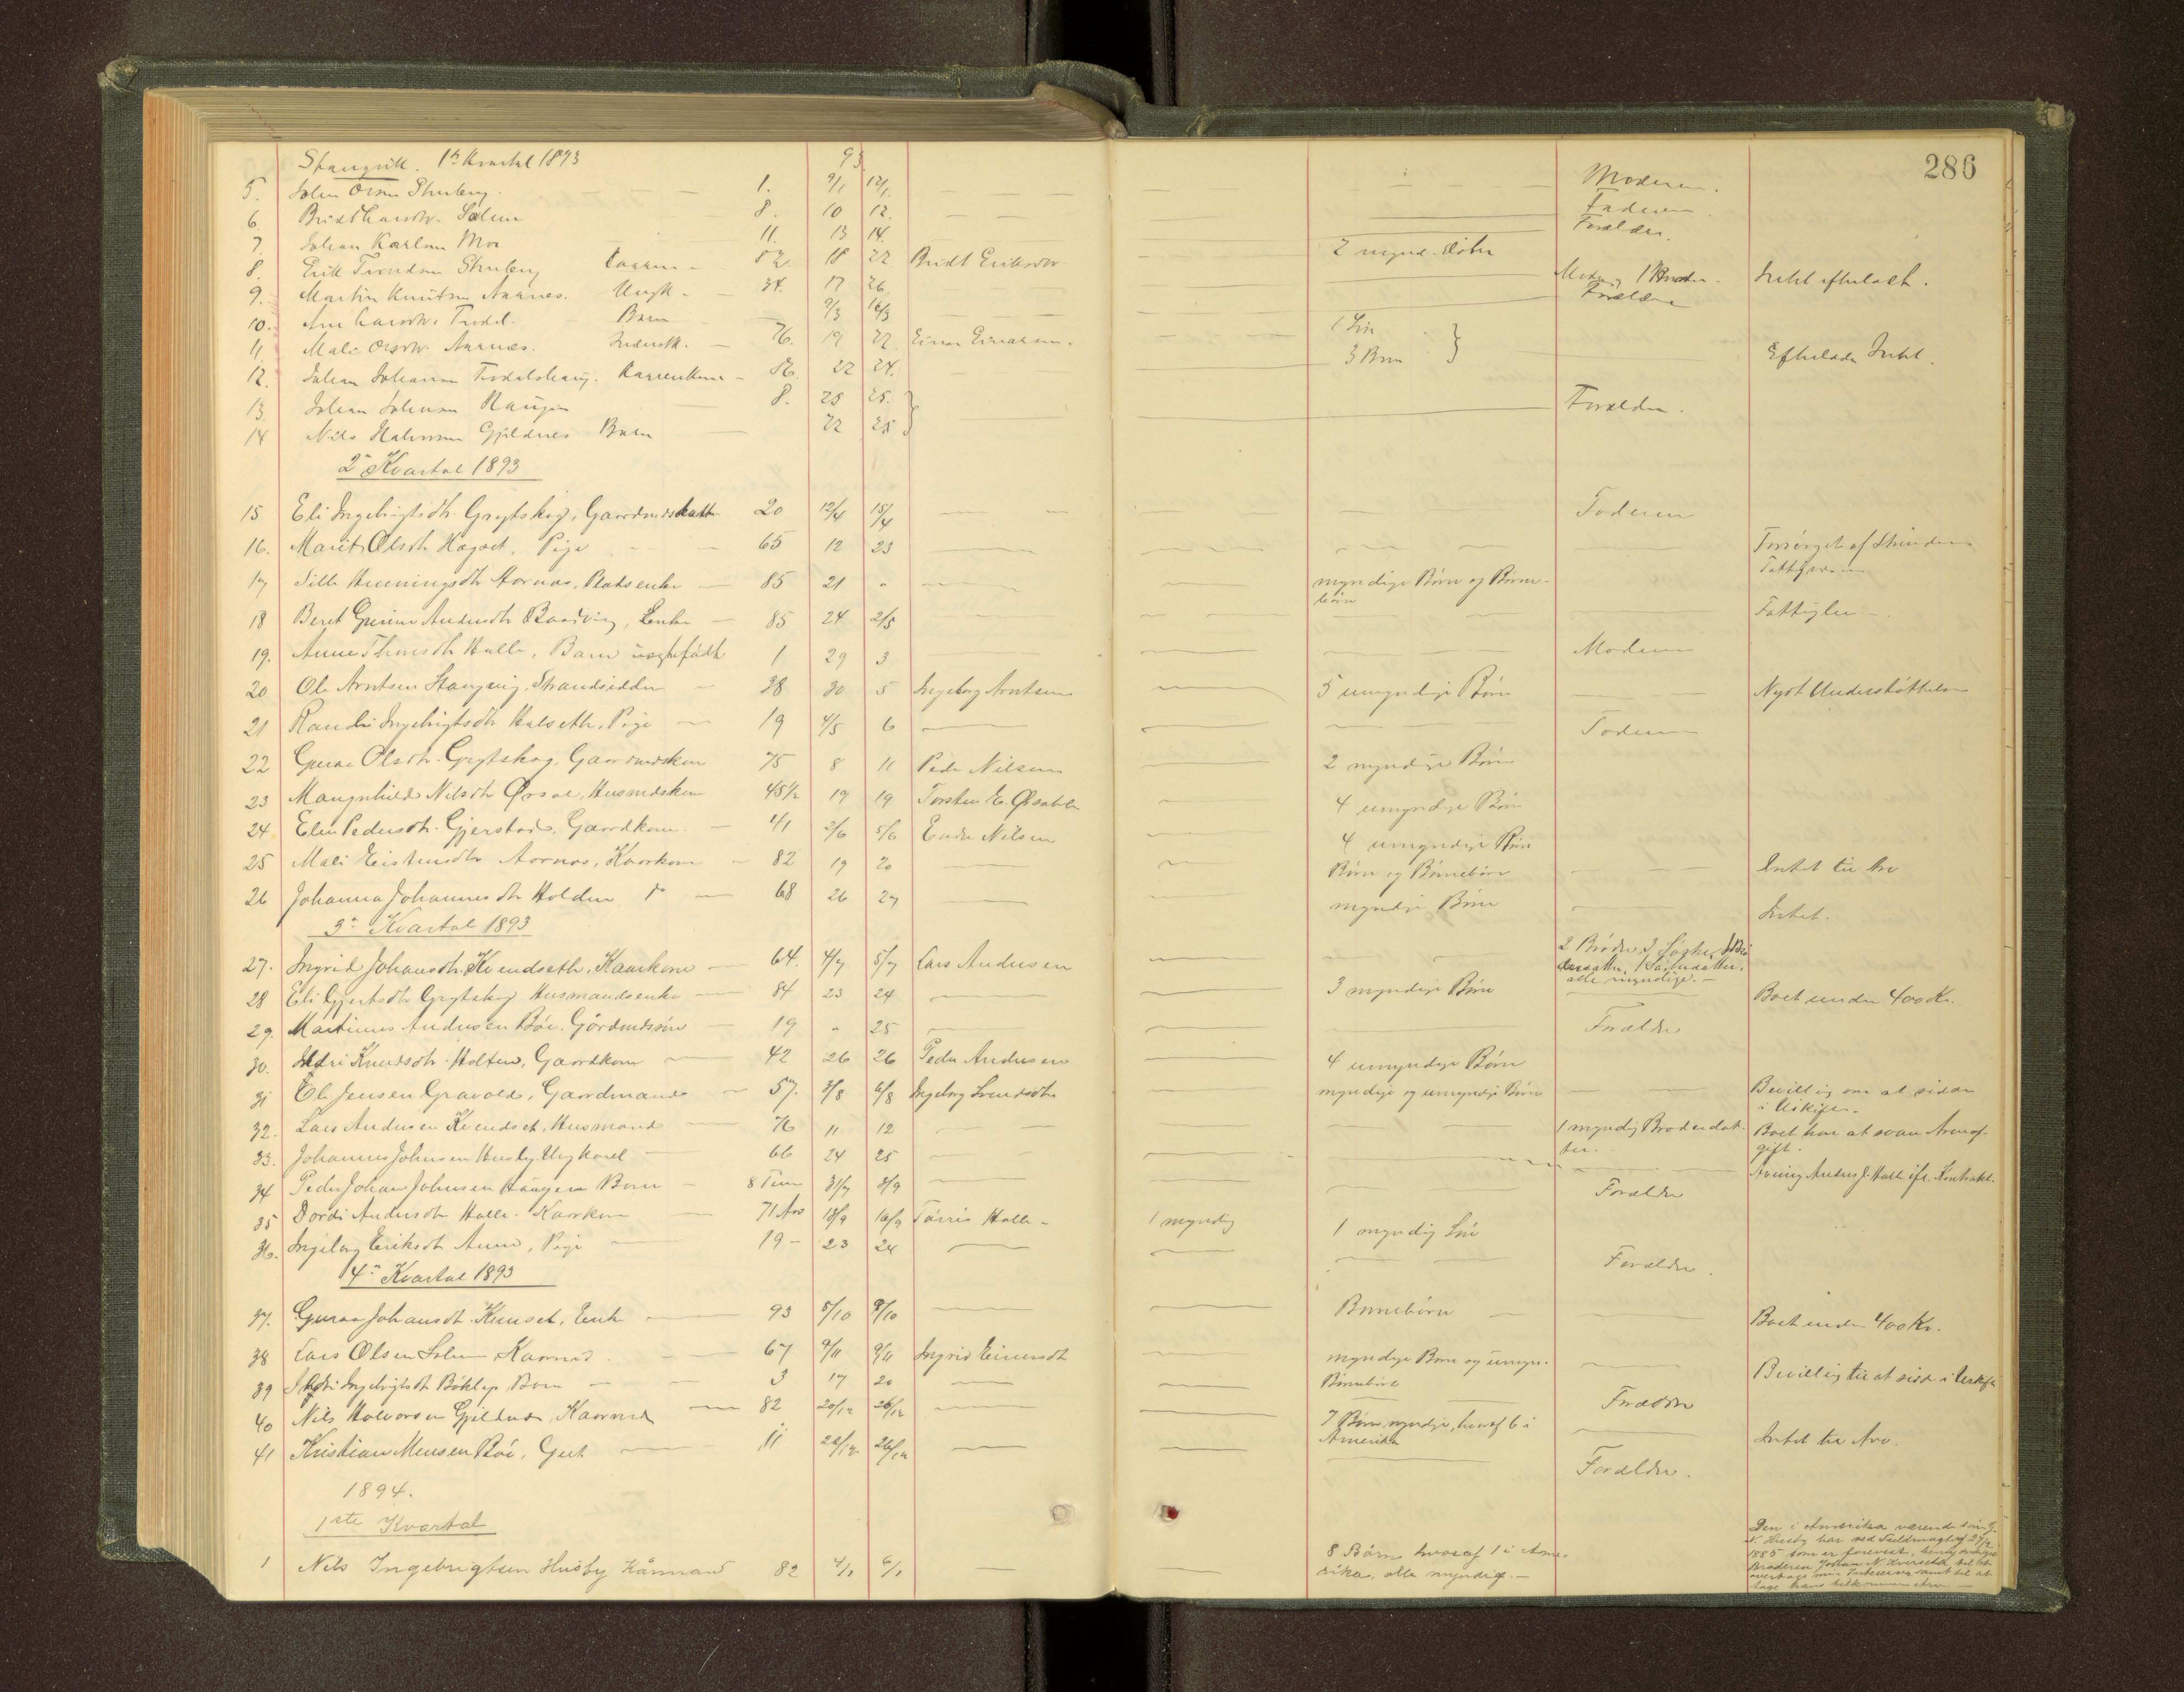 286
Stangvik. 1ste Kvartal 1893 93
5. John Olsen 1. 9/1 12/1 Moderen.
6. Bridt Larsdtr. Solem 8. 10 12. Faderen.
7. Johan Karlsen Moe 11. 13 14. Forældre.
8. Erik Trondsen 82. 18 22 Bridt Eriksdtr 2 mynd. Døtre
9. Martin Knutsen Aarnes. Ungk. 34. 17 26 Moder, 1 Broder. Intet efterladt.
10. Ane Larsdtr. Barn 9/3 14/3 Forældre
11. Mali Olsdtr. Aarnes. Inderstk. 76. 19 22. Einar Einarsen. 1 Søn
12. Johan Johansen Kaarenkemand 86. 22 24. 3 Børn Efterlader Intet.
13. Johan Johnsen Haugen 8. 25 25. Forældre.
14 Nils Halvorsen Gjeldnes Barn 22 25
2. Kvartal 1893
15 Eli Ingebrigtsdtr. Grytskog, Gaardmdsdatter 20 12/4 15/4 Faderen
16. Marit Olsdtr Hagset, Pige 65 12 23 Forsørget af
17 Sille Henningsdtr Aarnes, Pladsenke 85 21 " myndige Børn og Børne-
børn
18 Beret Andersdtr Enke 85 24 2/5 Fattiglem.
19. Anne Halle, Barn uægtefødt 1 29 3 Moderen
20 Ole Arntsen Stangvig, Strandsidder 38 30 5 Ingeborg Arntsen 5 umyndige Børn Nydt Understøttelse
21 Randi Ingebrigtsdtr Halseth, Pige 19 4/5 6 Faderen
22 Guroe Olsdtr. Grytskog, Gaardmdskone 75 8 11 Peder Nilsen 2 myndige Børn
23 Mangnhild Nilsdtr Husmdskone 45½ 19 19 Torsten E. 4 umyndige Børn
24 Elen Pedersdtr. Gjerstad, Gaardkone 41 2/6 5/6 Endre Nilsen 4 umyndige Børn
25 Mali Eistensdtr Aarnes, Kaarkone 82 19 20 Børn og Børnebørn Intet til Arv
26 Johanna Johannesdtr Holden do 68 26 27 myndige Børn Intet.
3. Kvartal 1893
27. Ingrid Johansdtr. Kvendseth, Kaarkone 64. 4/7 5/7 Lars Andersen 2 Brødre, 3 Søstre,
1 Søsterdatter,
alle myndige.
28 Eli Gjertsdtr Grytskog Husmandsenke 84 23 24 3 myndige Børn Boet under 400 Kr.
29. Martinus Andersen Bøe. Gårdmdssøn 19 " 25 Forældre
30. Sidri Knudsdtr. Holten, Gaardkone 42 26 26 Peder Andersen 4 umyndige Børn
31 Ole Jensen Gravold, Gaardmand 57. 3/8 6/8 Ingeborg Svendsdtr myndige og umyndige Børn Bevilling om at sidde
i Uskifte.
32. Lars Andersen Kvendset, Husmand 76 11 12 1 myndig Broderdat-
ter. Boet har at svare Arveaf-
gift.
33. Johannes Johnsen Husby, Ungkarl 66 24 25 Arving Anders J. Halle ifl. Kontrakt.
34 Peder Johan Johnsen Haugen Barn 8 Timer 31/7 3/9 Forældre
35 Dordi Andersdtr Halle. Kaarkone 71 Aar 13/9 16/9 Halle 1 myndig 1 myndig Søn
36. Ingeborg Eriksdtr Aune, Pige 19 23 24 Forældre.
4. Kvartal 1893
37. Guroe Johansdtr. Enke 93 5/10 9/10 Børnebørn Boet under 400 Kr.
38 Lars Olsen Solem Kaarmd. 67 9/11 9/11 Ingrid Einersdt myndige Børn og umyn.
Børnebørn Bevilling til at sidde i Uskifte
39 Ingebrigtsdtr Bøklep, Barn 3 17 20 Forældre
40 Nils Halvorsen Gjeldnes, Kaarmd 82 20/12 26/12 7 Børn, myndige, hvoraf 6 i
Amerika Intet til Arv.
41 Kristian Monsen Bøe, Gut 11 22/12 26/12 Forældre.
1894.
1ste Kvartal
1 Nils Ingebrigtsen Husby Kårmand 82 4/1 6/1 8 Børn hvoraf 1 i Ame-
rika, alle myndige.
Den i Amerika værende Søn
N. Husby har ved Fuldmagt af
1885 som er forevist,
Broderen Johan N. Kvendseth til at
overtage sine Interesser samt til at
tage hans tilkommende Arv.